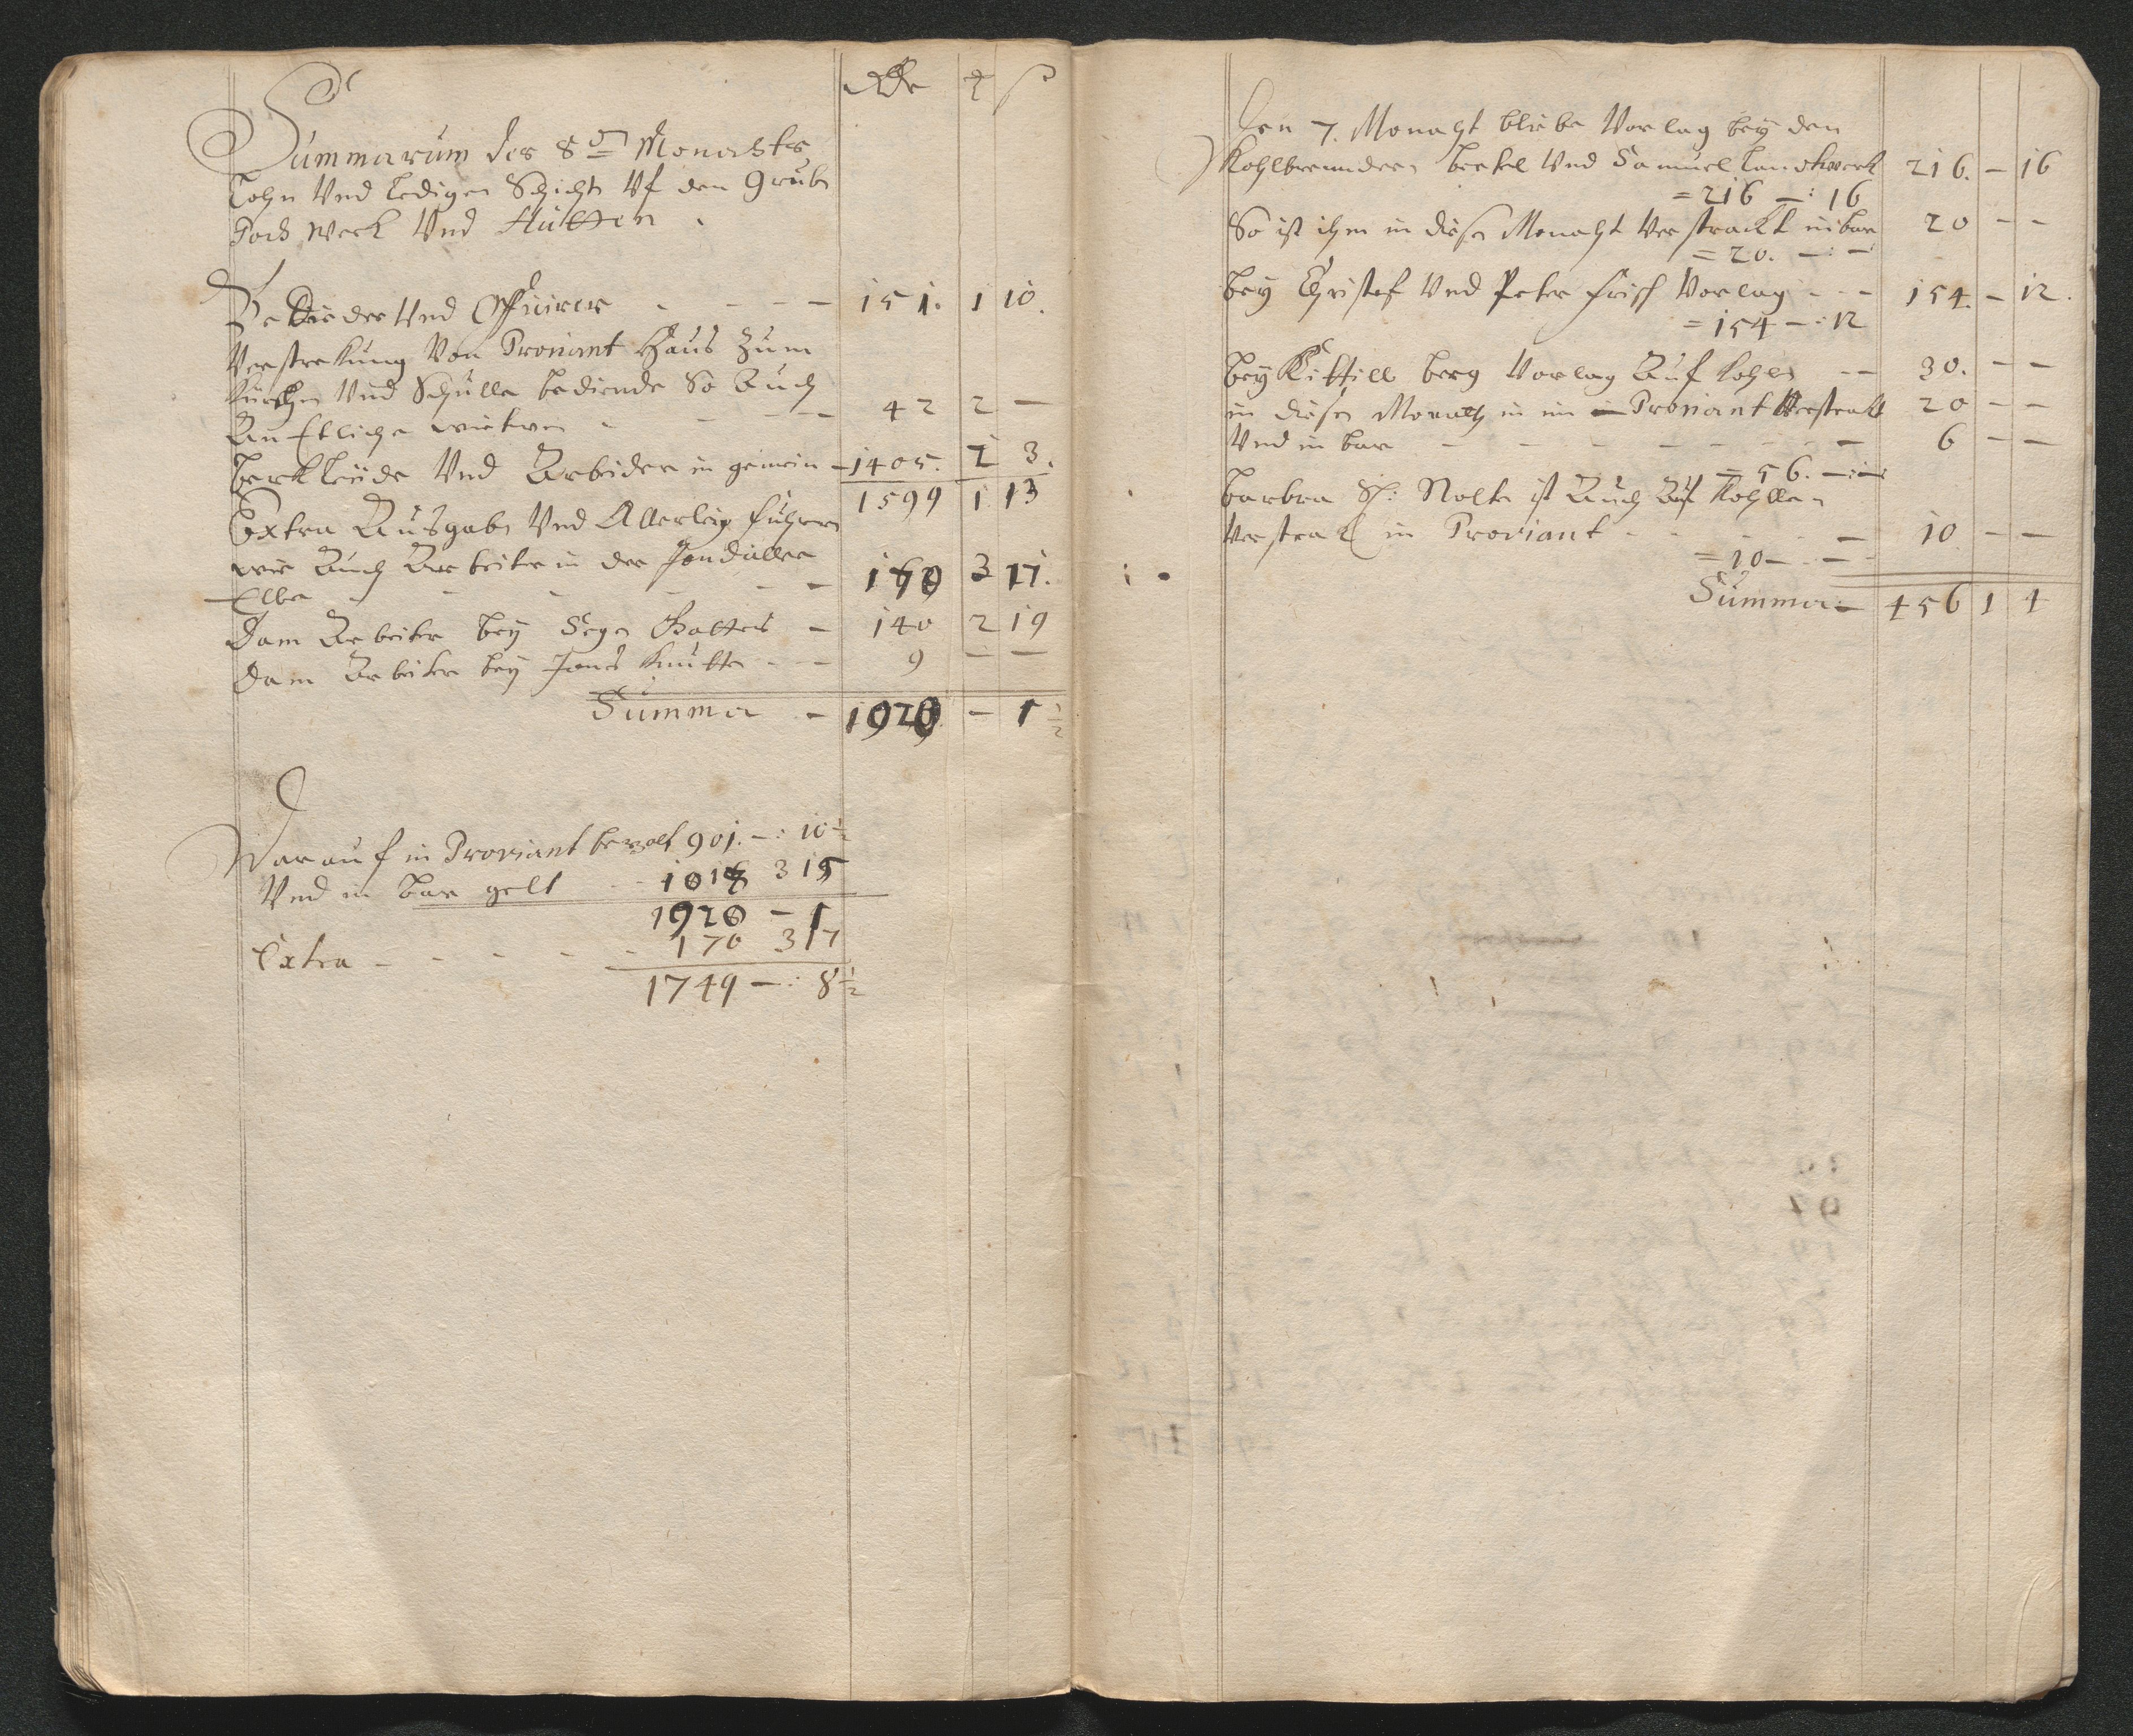 Rdr
Summarum des 8ᵒ Monachts
Lohn Vnd Ledigen Schicht Vf den Grube
Poch Werk Vnd Hütten.
Bedinder Vnd Officirer - - - - 151. 1 10.
Verstrekung Von Proviant Haus Zum
Kürchen Vnd Schulle bediende So Auch
An Etliche witwen - - - - 42 2 -
berk Leüde Vnd Arbeider in gemein - 1405. 2 3.
1599 1 13
Extra Ausgabe Vnd Allerleÿ fuhren
wie Auch Arbeiter in der
Elbe - - - - 170 3 17.
Dam Arbeiter beÿ - 140 2 19
Dam Arbeiter beÿ Jons Knutte - - 9 - -
Summa - 1920 - 1 ½
Darauf in Proviant bezalt 901. -: 10 ½
Vnd in bar gelt - 1018 3 15
1920 - 1
Extra - - - - - 170 3 17
1749 -: 8 ½
Den 7. Monaht bliebe Vorlag beÿ den
Kohlbrenndern berkel Vnd Samuel Landtwerk 216. - 16
= 216 -: 16
So ist ihm in diesen Monaht Verstrackt in bar 20 - -
= 20. -:-
beÿ Christof Vnd Peter frisch Vorlag - - - 154. - 12.
= 154 -: 12
beÿ Kittill berg Vorlag Auf Kohlen - - 30. - -
in diesen Monaht in Proviant Verstrakt 20 - -
Vnd in bar - - - - - - - - 6 - -
= 56. -:-
barbra Sl: Nolte ist Auch Auf Kohllen
Verstrakt in Proviant - - - - - 10 - -
= 10 - -
Summa - 456 1 4